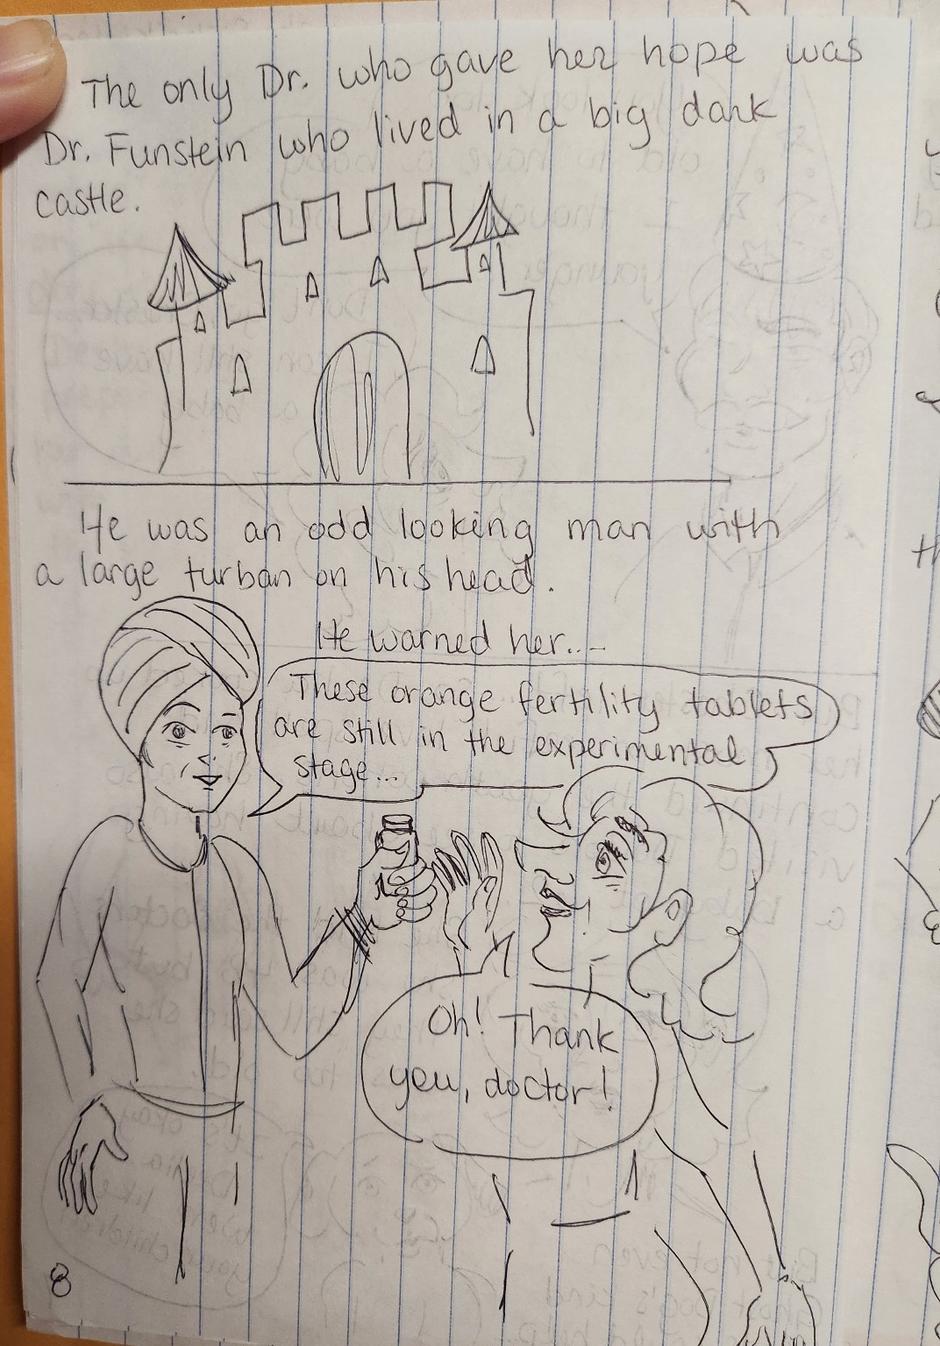 The only Dr. who gave her hope was
Dr. Funstein who lived in a big dark
castle.
He was an odd looking man with
a large turban on his head.
He warned her...
These orange fertility tablets
are still in the experimental
stage...
Oh! Thank
you, doctor!
8